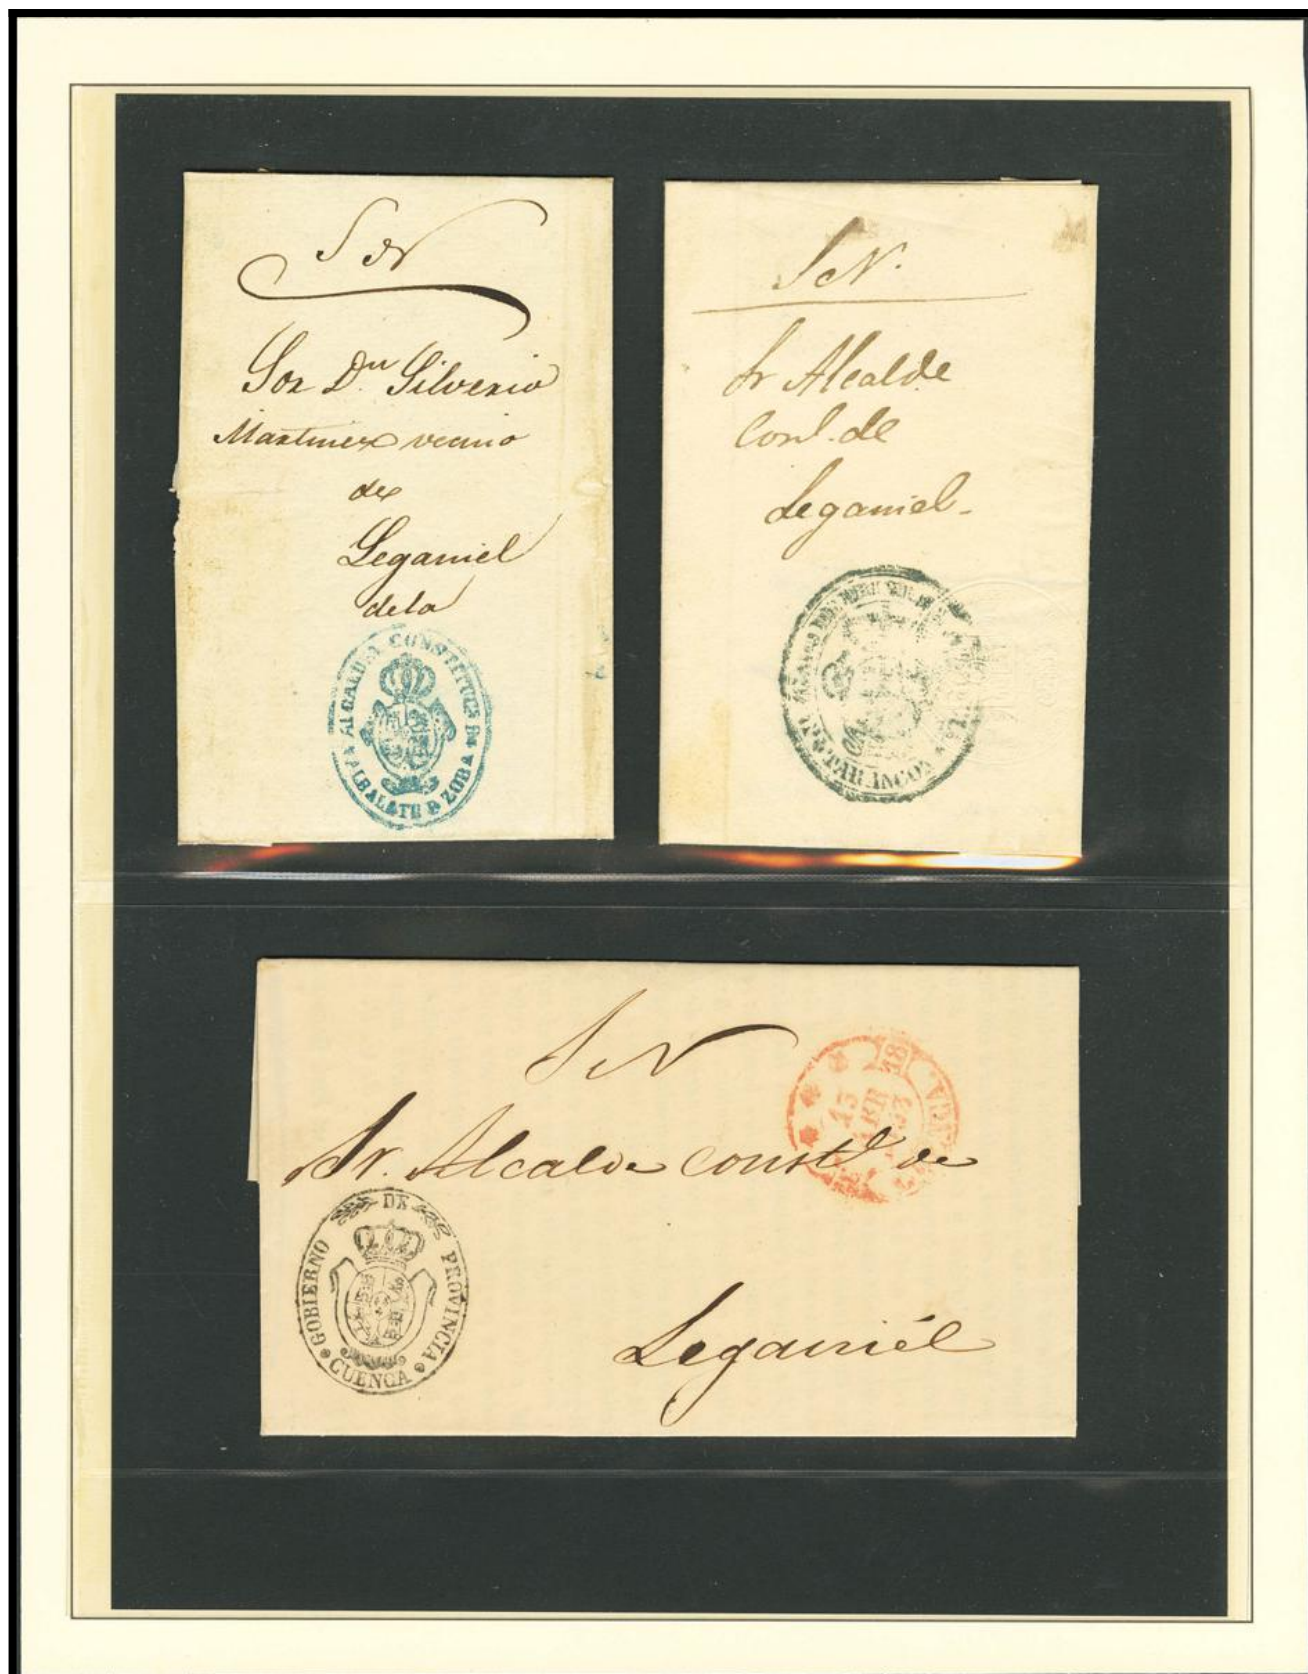 S N
Sor Dn Silverio
Martinez vecino
de
Leganiel
dela
ALCALDIA CONSTITUCL D
ALBALATE D ZORA
S N.
Sr Alcalde
Conl. de
Leganiel.
TARANCON
S N
Sr. Alcalde constl de
Leganiél
GOBIERNO DE PROVINCIA
CUENCA
13